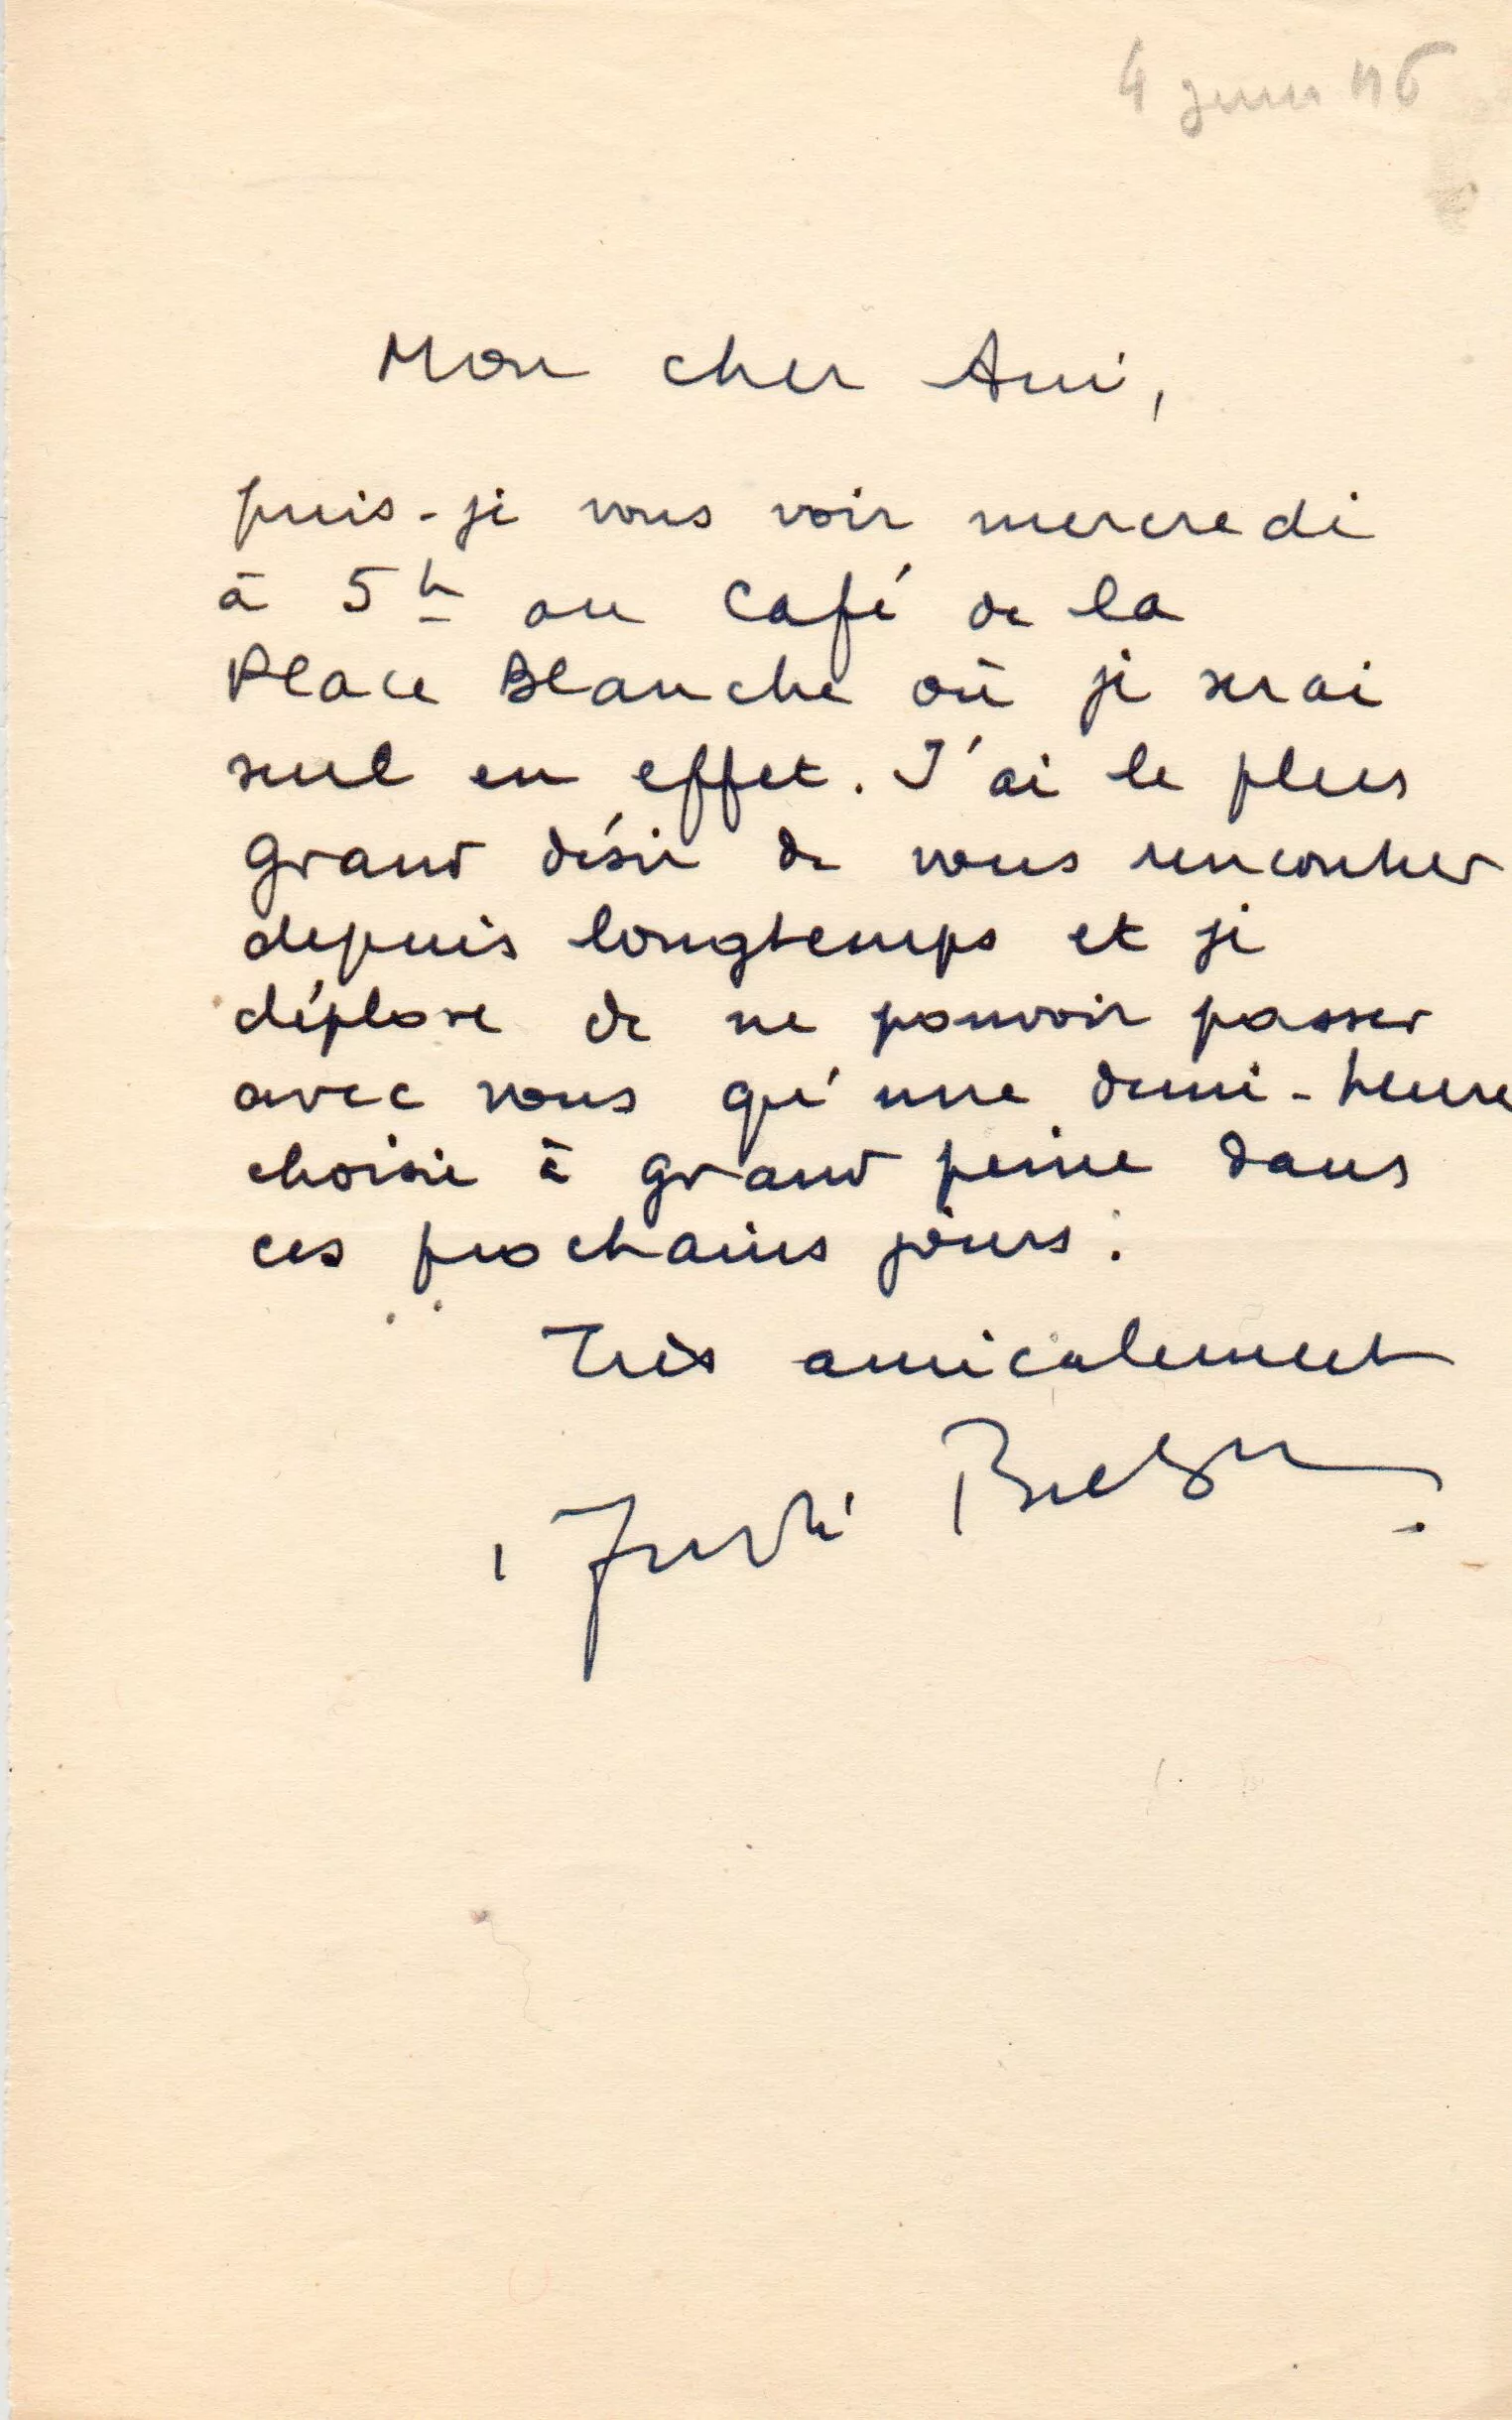 4 juin 46
Mon cher Ami,
puis-je vous voir mercredi
à 5h au Café de la
Place Blanche où je serai
seul en effet. J'ai le plus
grand désir de vous rencontrer
depuis longtemps et je
déplore de ne pouvoir passer
avec vous qu'une demi-heure
choisie à grand peine dans
ces prochains jours.
Très amicalement
André Breton